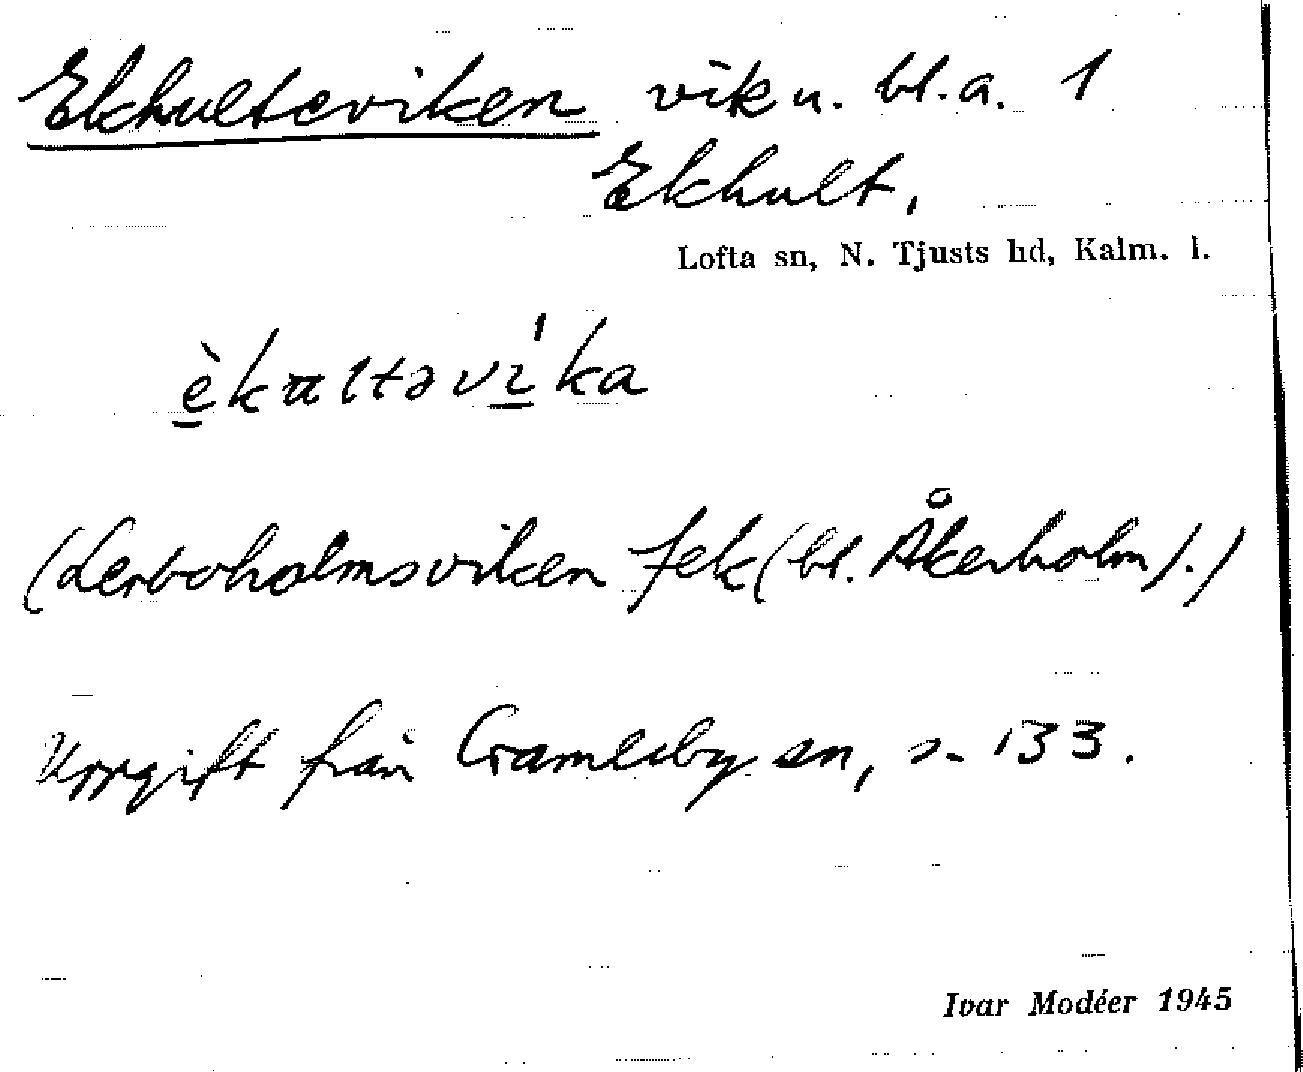 Ekhulteviken vik u. bl.a. 1
Ekhult,
Lofta sn, N. Tjusts hd, Kalm. l.
èkultəvi̱ka
(Lerboholmsviken fek (bl. Åkerholm).)
Uppgift från Gamleby sn, s. 133.
Ivar Modéer 1945